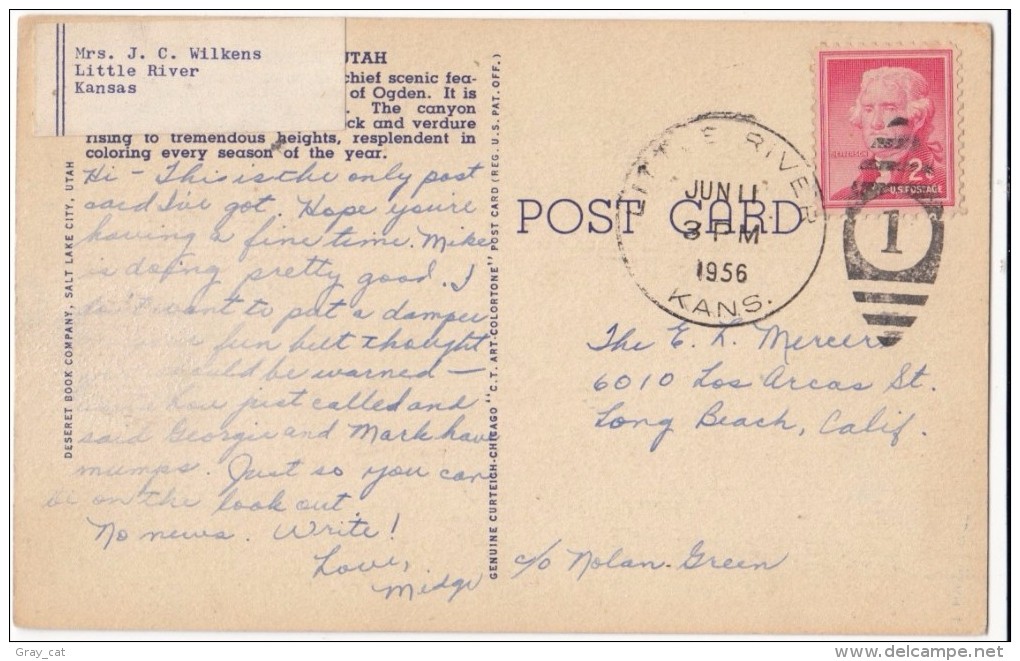 Mrs. J. C. Wilkens
Little River
Kansas
UTAH
chief scenic fea-
of Ogden. It is
. The canyon
ck and verdure
rising to tremendous heights, resplendent in
coloring every season of the year.
Hi - This is the only post
card I've got. Hope you're
having a fine time. Mike
is doing pretty good. I
don't want to put a damper
fun but thought
should be warned -
just called and
said Georgie and Mark have
mumps. Just so you can
be on the look out.
No news. Write!
Love,
Midge
DESERET BOOK COMPANY, SALT LAKE CITY, UTAH
GENUINE CURTEICH-CHICAGO "C.T. ART-COLORTONE" POST CARD (REG. U.S. PAT. OFF.)
POST CARD
LITTLE RIVER
JUN 11
3 PM
1956
KANS.
JEFFERSON
2¢
U.S. POSTAGE
1
The E. L. Mercers
6010 Los Arcos St.
Long Beach, Calif.
c/o Nolan Green
Gray_cat
delcampe.net